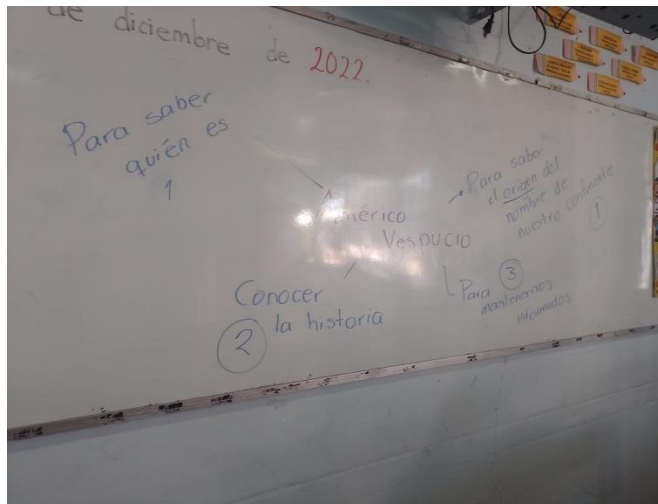 de diciembre de 2022.
Para saber
quién es
1
Américo
Vespucio
Para saber
el origen del
nombre de
nuestro continente
1
Conocer
la historia
2
Para 3
mantenernos
informados